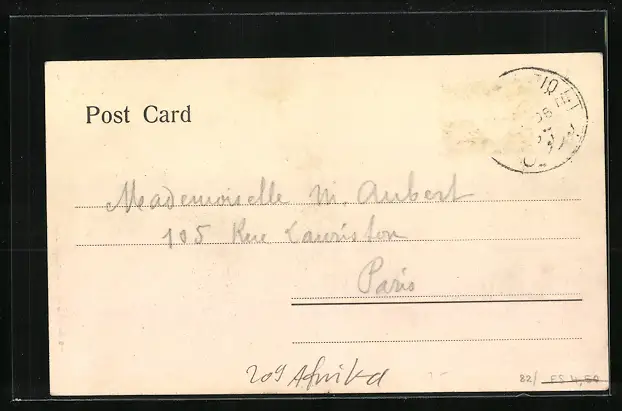 Post Card
Mademoiselle M. Aubert
105 Rue Lauriston
Paris
209 Afrika
82/ FS 4,50